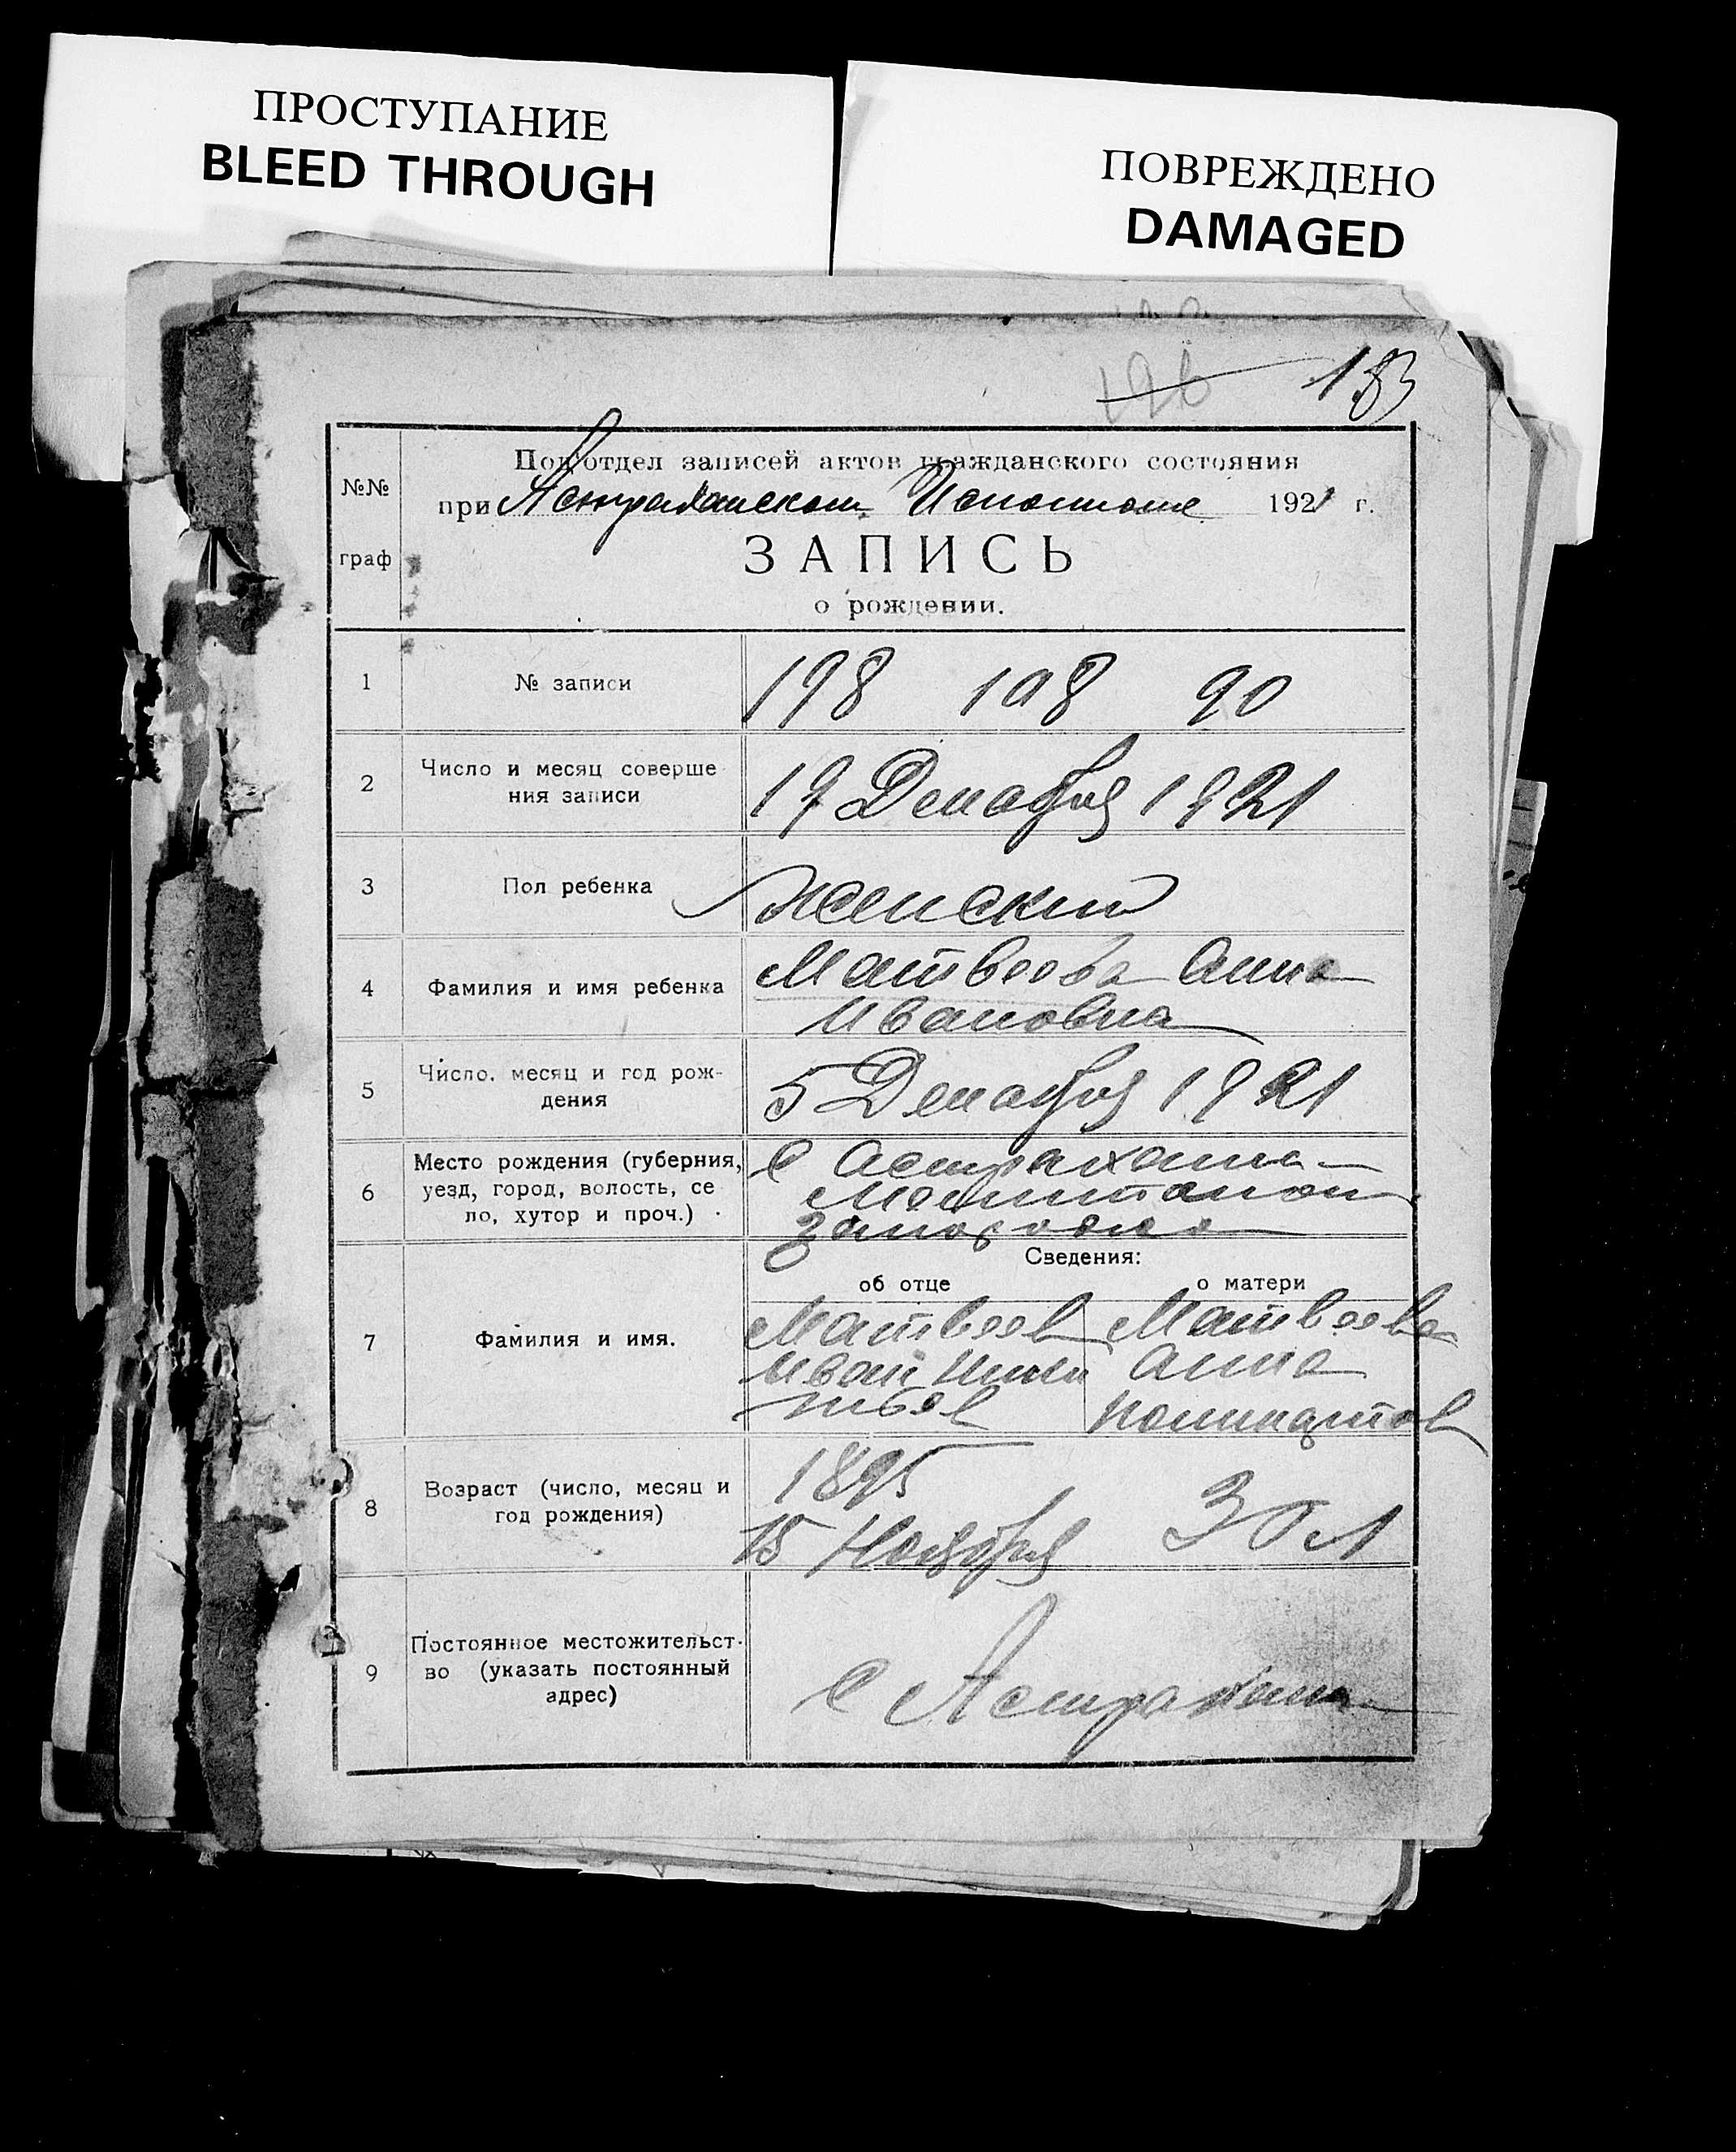 ПРОСТУПАНИЕ
BLEED THROUGH
ПОВРЕЖДЕНО
DAMAGED
196 183
№№
граф
Подотдел записей актов гражданского состояния
при Астраханском 1921 г.
ЗАПИСЬ
о рождении.
1 № записи 198 198 90
2 Число и месяц соверше
ния записи
19 Декабря 1921
3 Пол ребенка Женский
4 Фамилия и имя ребенка
Матвеева Анна
Ивановна
5 Число, месяц и год рож-
дения
5 Декабря 1921
6 Место рождения (губерния,
уезд, город, волость, се
ло, хутор и проч.)
с Астрахан
Сведения:
об отце о матери
7 Фамилия и имя.
Матвеев
Иван
Матвеева
Анна
8 Возраст (число, месяц и
год рождения)
1895
15 Ноября
30 л
9 Постоянное местожительст-
во (указать постоянный
адрес)
с Астрахан